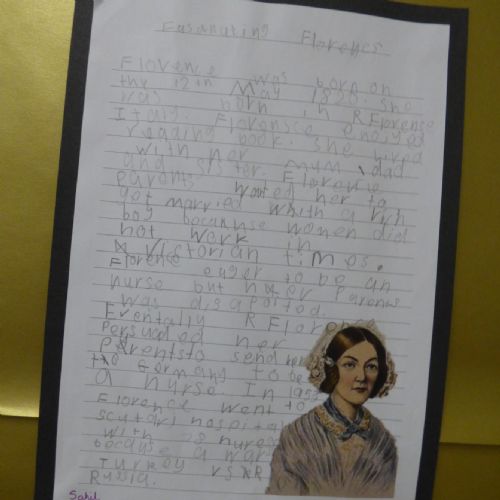 Fasanating Florenes
Florence was born on
the 12th May 1820. She
was born in RFlorense
Italy. Floronsce enoiyed
reading book. She lived
with her mum, dad
and sister. Florence
parents wanted her to
got married whith a rich
boy becanuse women did
not work in
Victorian times.
Florence eager to be an
nurse but her Parents
was disapoited.
Eventally R Florence
Persuaded her
Perentsto send her
to Germany to be
a nurse In 1953
Florence went to
scutari hospital
with 38 nures
becaose a war
Turkey vs RR
Russia.